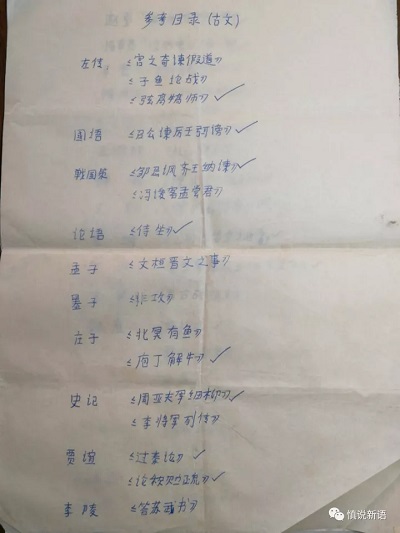 参考目录(古文)
左传 《宫之奇谏假道》
《子鱼论战》
《弦高犒师》✓
国语 《召公谏厉王弭谤》✓
战国策 《邹忌讽齐王纳谏》✓
《冯谖客孟尝君》
论语 《侍坐》✓
孟子 《文桓晋文之事》
墨子 《非攻》
庄子 《北冥有鱼》
《庖丁解牛》✓
史记 《周亚夫军细柳》✓
《李将军列传》
贾谊 《过秦论》✓
《论积贮疏》✓
李陵 《答苏武书》
慎说新语